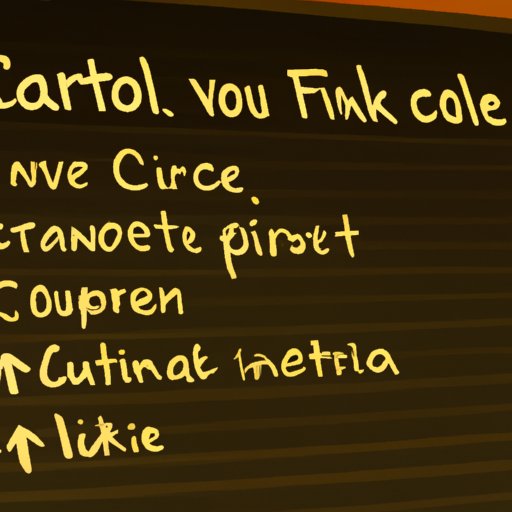 Cartol. vou Fink cole
nve Circe.
cTanoete pirset
Coupren
↑Cutinat hetrla
↑ likie